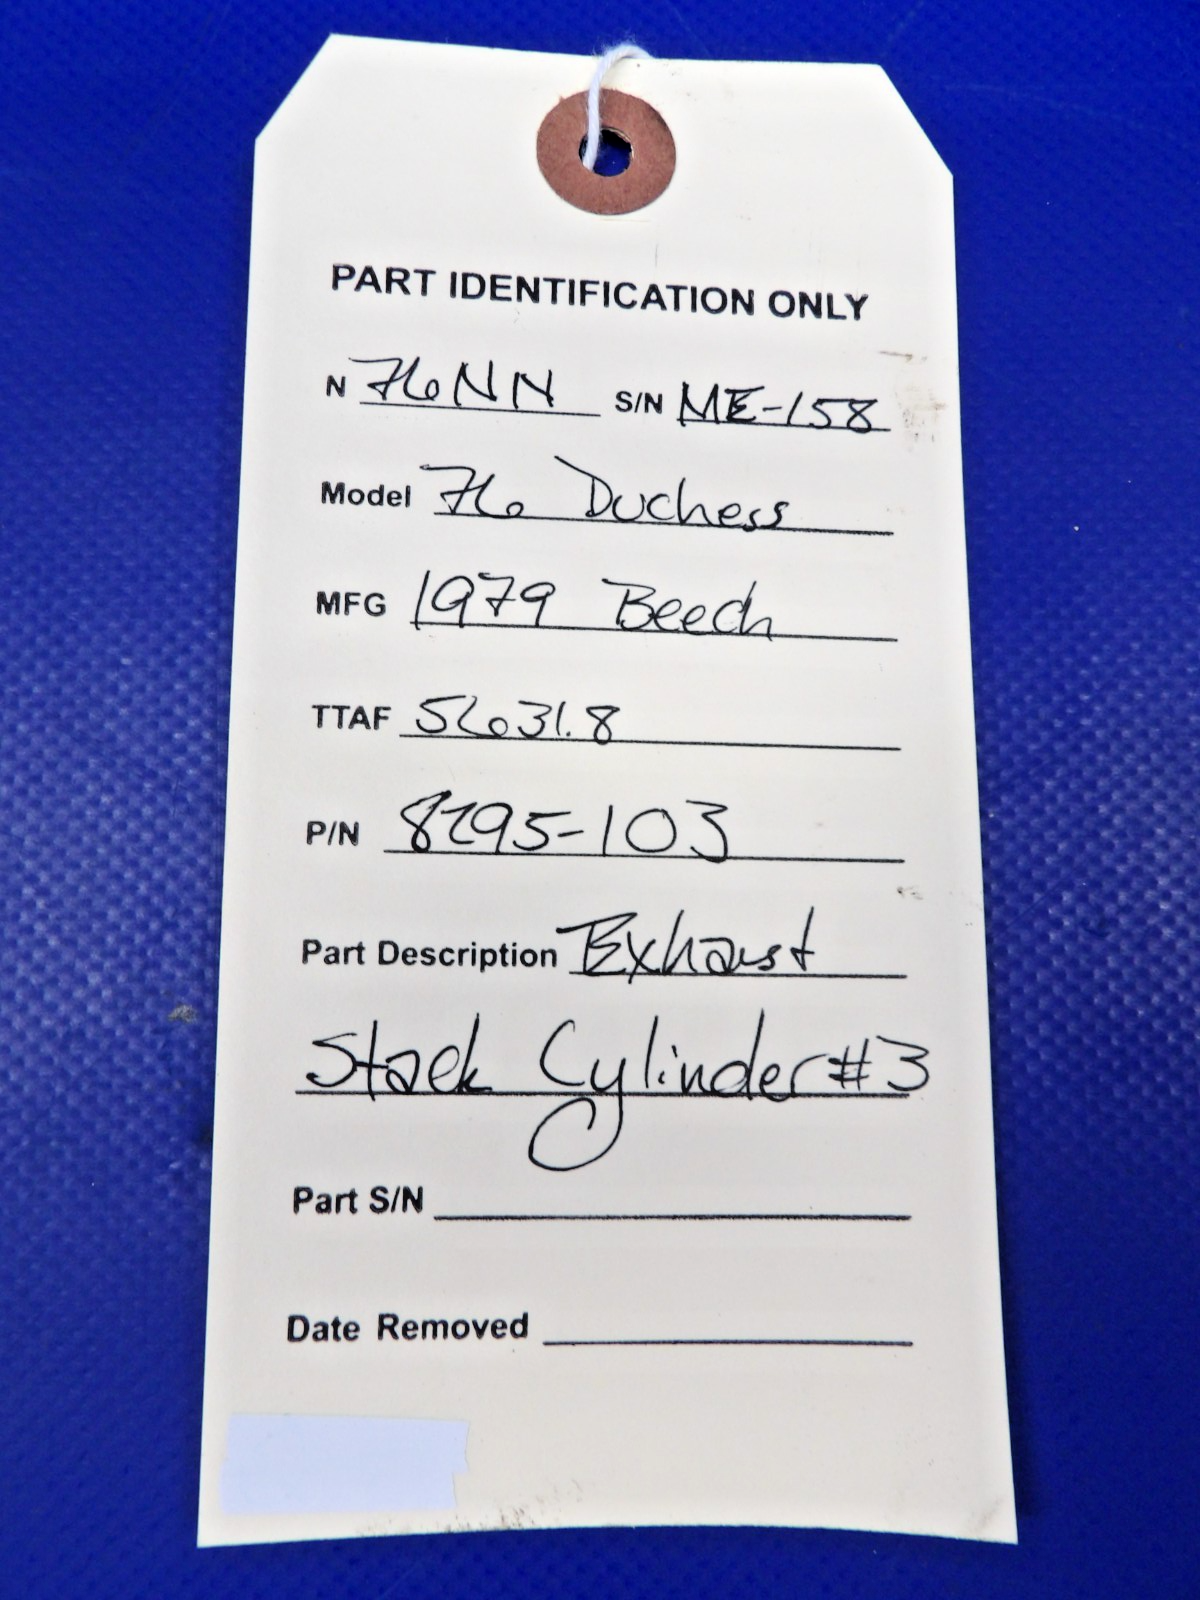 PART IDENTIFICATION ONLY
N 76NN S/N ME-158
Model 76 Duchess
MFG 1979 Beech
TTAF 5631.8
P/N 8295-103
Part Description Exhaust
Stack Cylinder #3
Part S/N
Date Removed